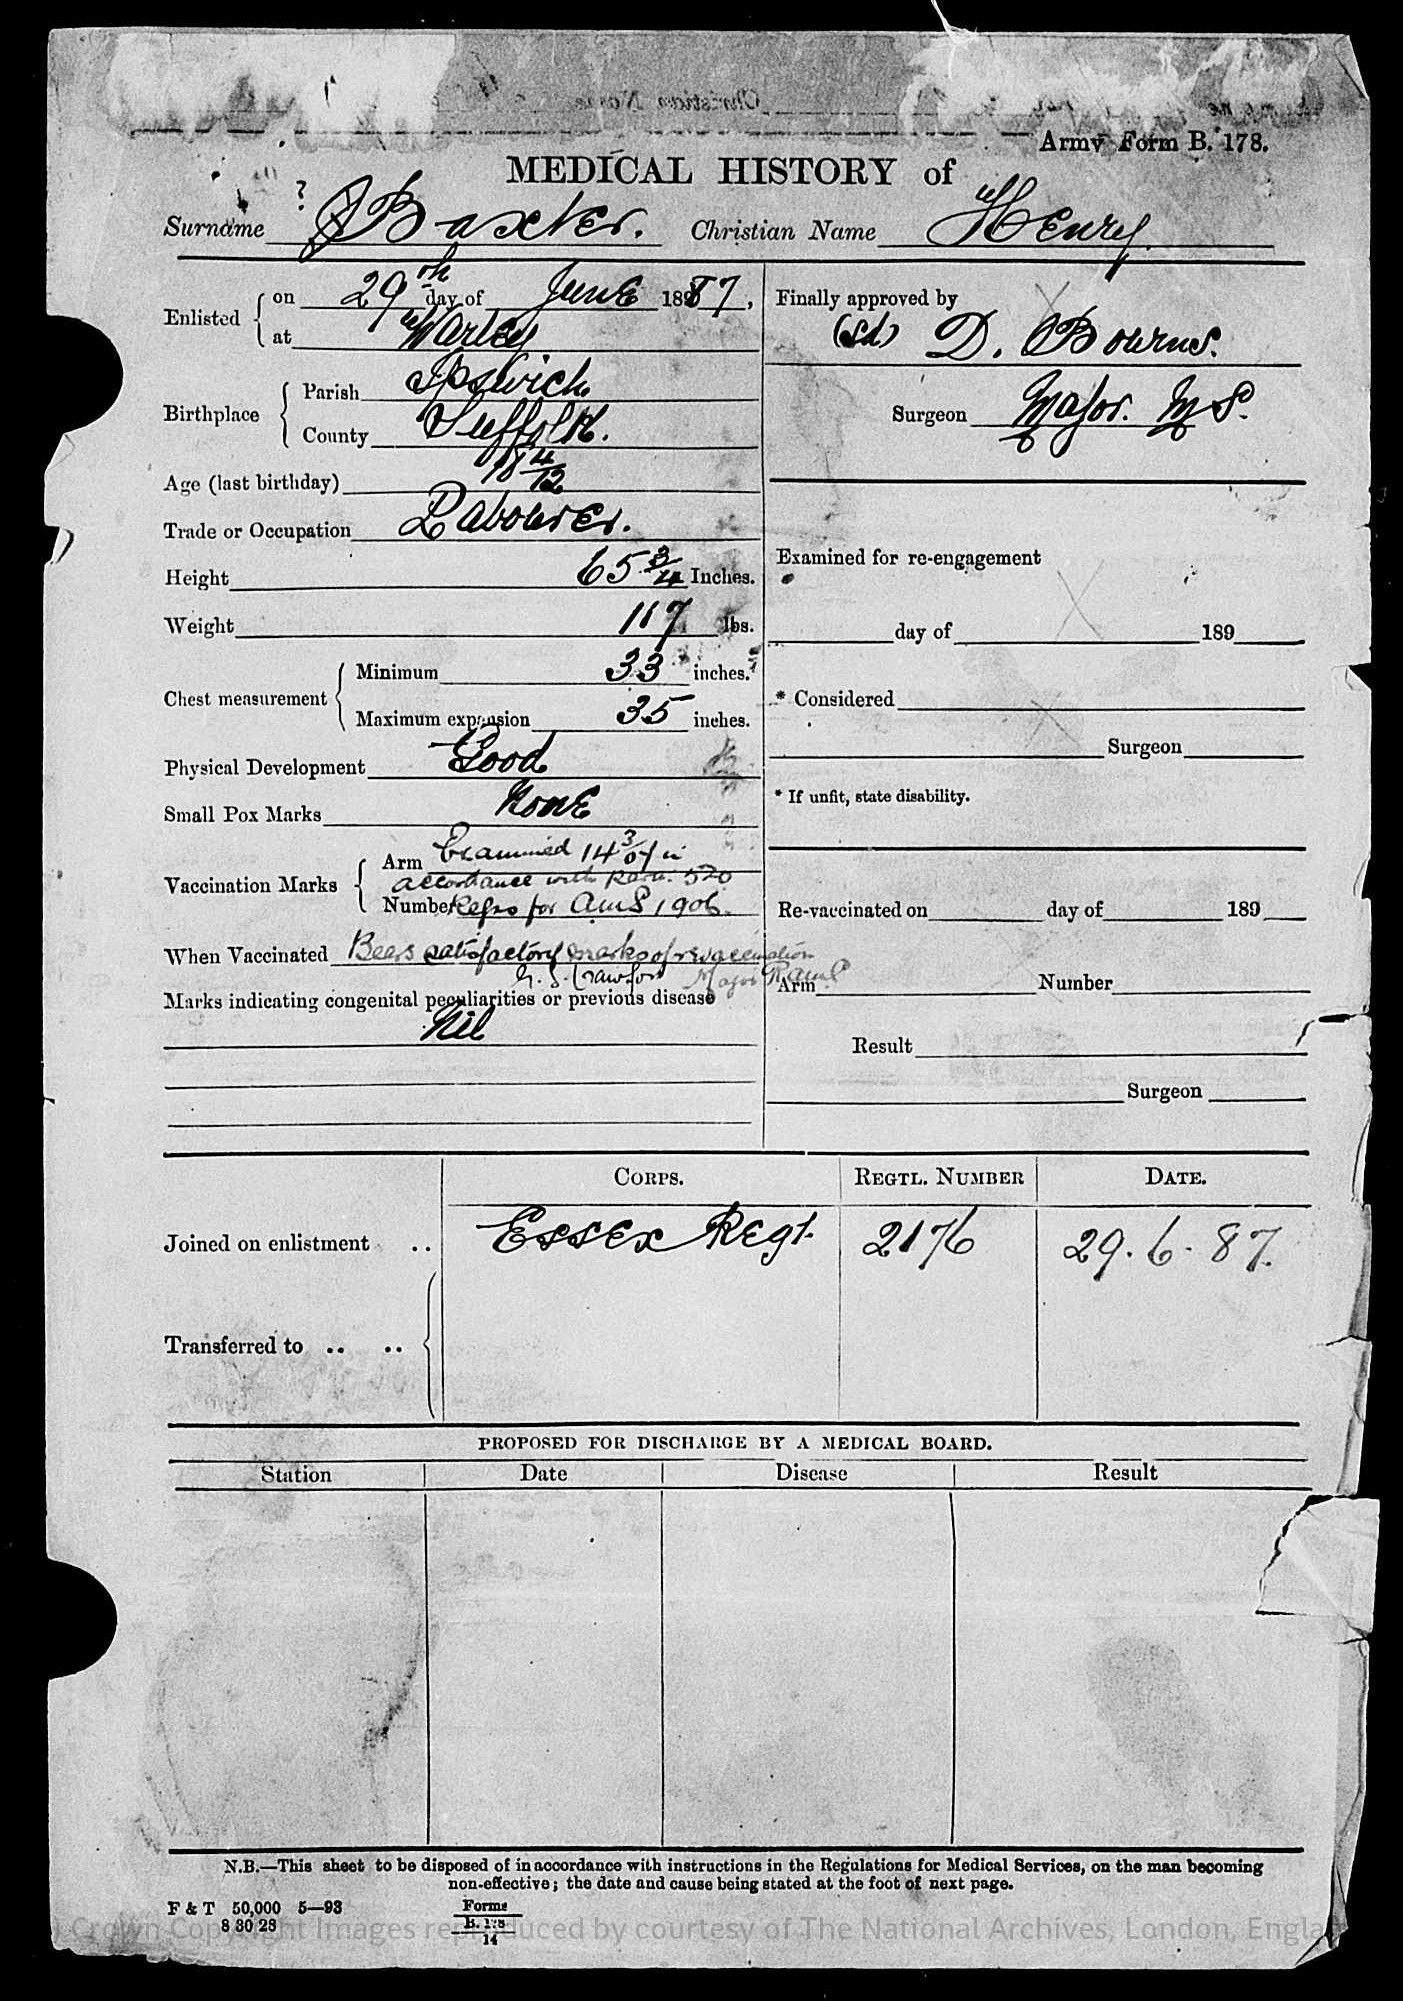 Army Form B. 178.
MEDICAL HISTORY of
Surname ? Baxter. Christian Name Henry.
Enlisted on 29th day of June 1887,
at Warley
Birthplace Parish Ipswich
County Suffolk.
Age (last birthday) 18 4/12
Trade or Occupation Labourer.
Height 65 3/4 Inches.
Weight 117 lbs.
Chest measurement Minimum 33 inches.
Maximum expansion 35 inches.
Physical Development Good
Small Pox Marks None
Vaccination Marks Arm Examined 14 3/07 in
accordance with Para. 520
Number Regns for AMS 1906.
When Vaccinated Bears satisfactory marks of revaccination
Crawford Major RAMC
Marks indicating congenital peculiarities or previous disease
Nil
Finally approved by
(sd) D. Bourns.
Surgeon Major. M S.
Examined for re-engagement
day of 189
* Considered
Surgeon
* If unfit, state disability.
Re-vaccinated on day of 189
Arm Number
Result
Surgeon
CORPS. REGTL. NUMBER DATE.
Joined on enlistment .. Essex Regt. 2176 29.6.87.
Transferred to .. ..
PROPOSED FOR DISCHARGE BY A MEDICAL BOARD.
Station Date Disease Result
N.B.—This sheet to be disposed of in accordance with instructions in the Regulations for Medical Services, on the man becoming
non-effective; the date and cause being stated at the foot of next page.
F & T 50,000 5—93
8 30 28
Forms
B. 178
14
Crown Copyright Images reproduced by courtesy of The National Archives, London, Engla